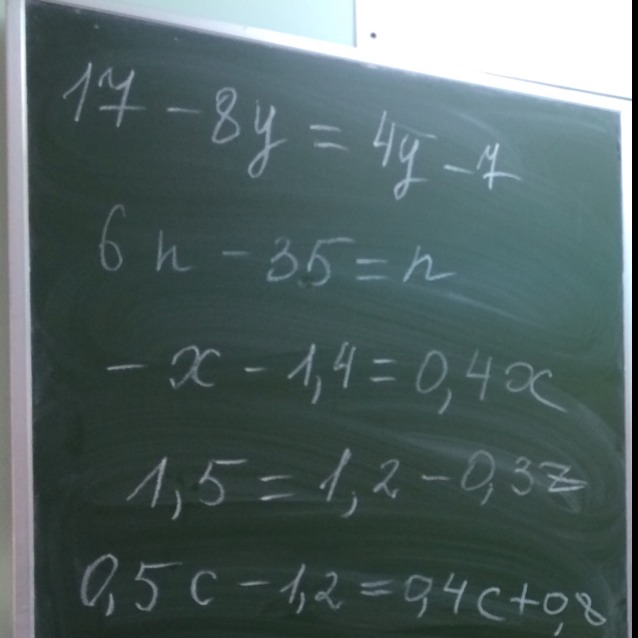 17 - 8y = 4y - 7
6n - 35 = n
- x - 1,4 = 0,4x
1,5 = 1,2 - 0,3z
0,5c - 1,2 = 0,4c + 0,8